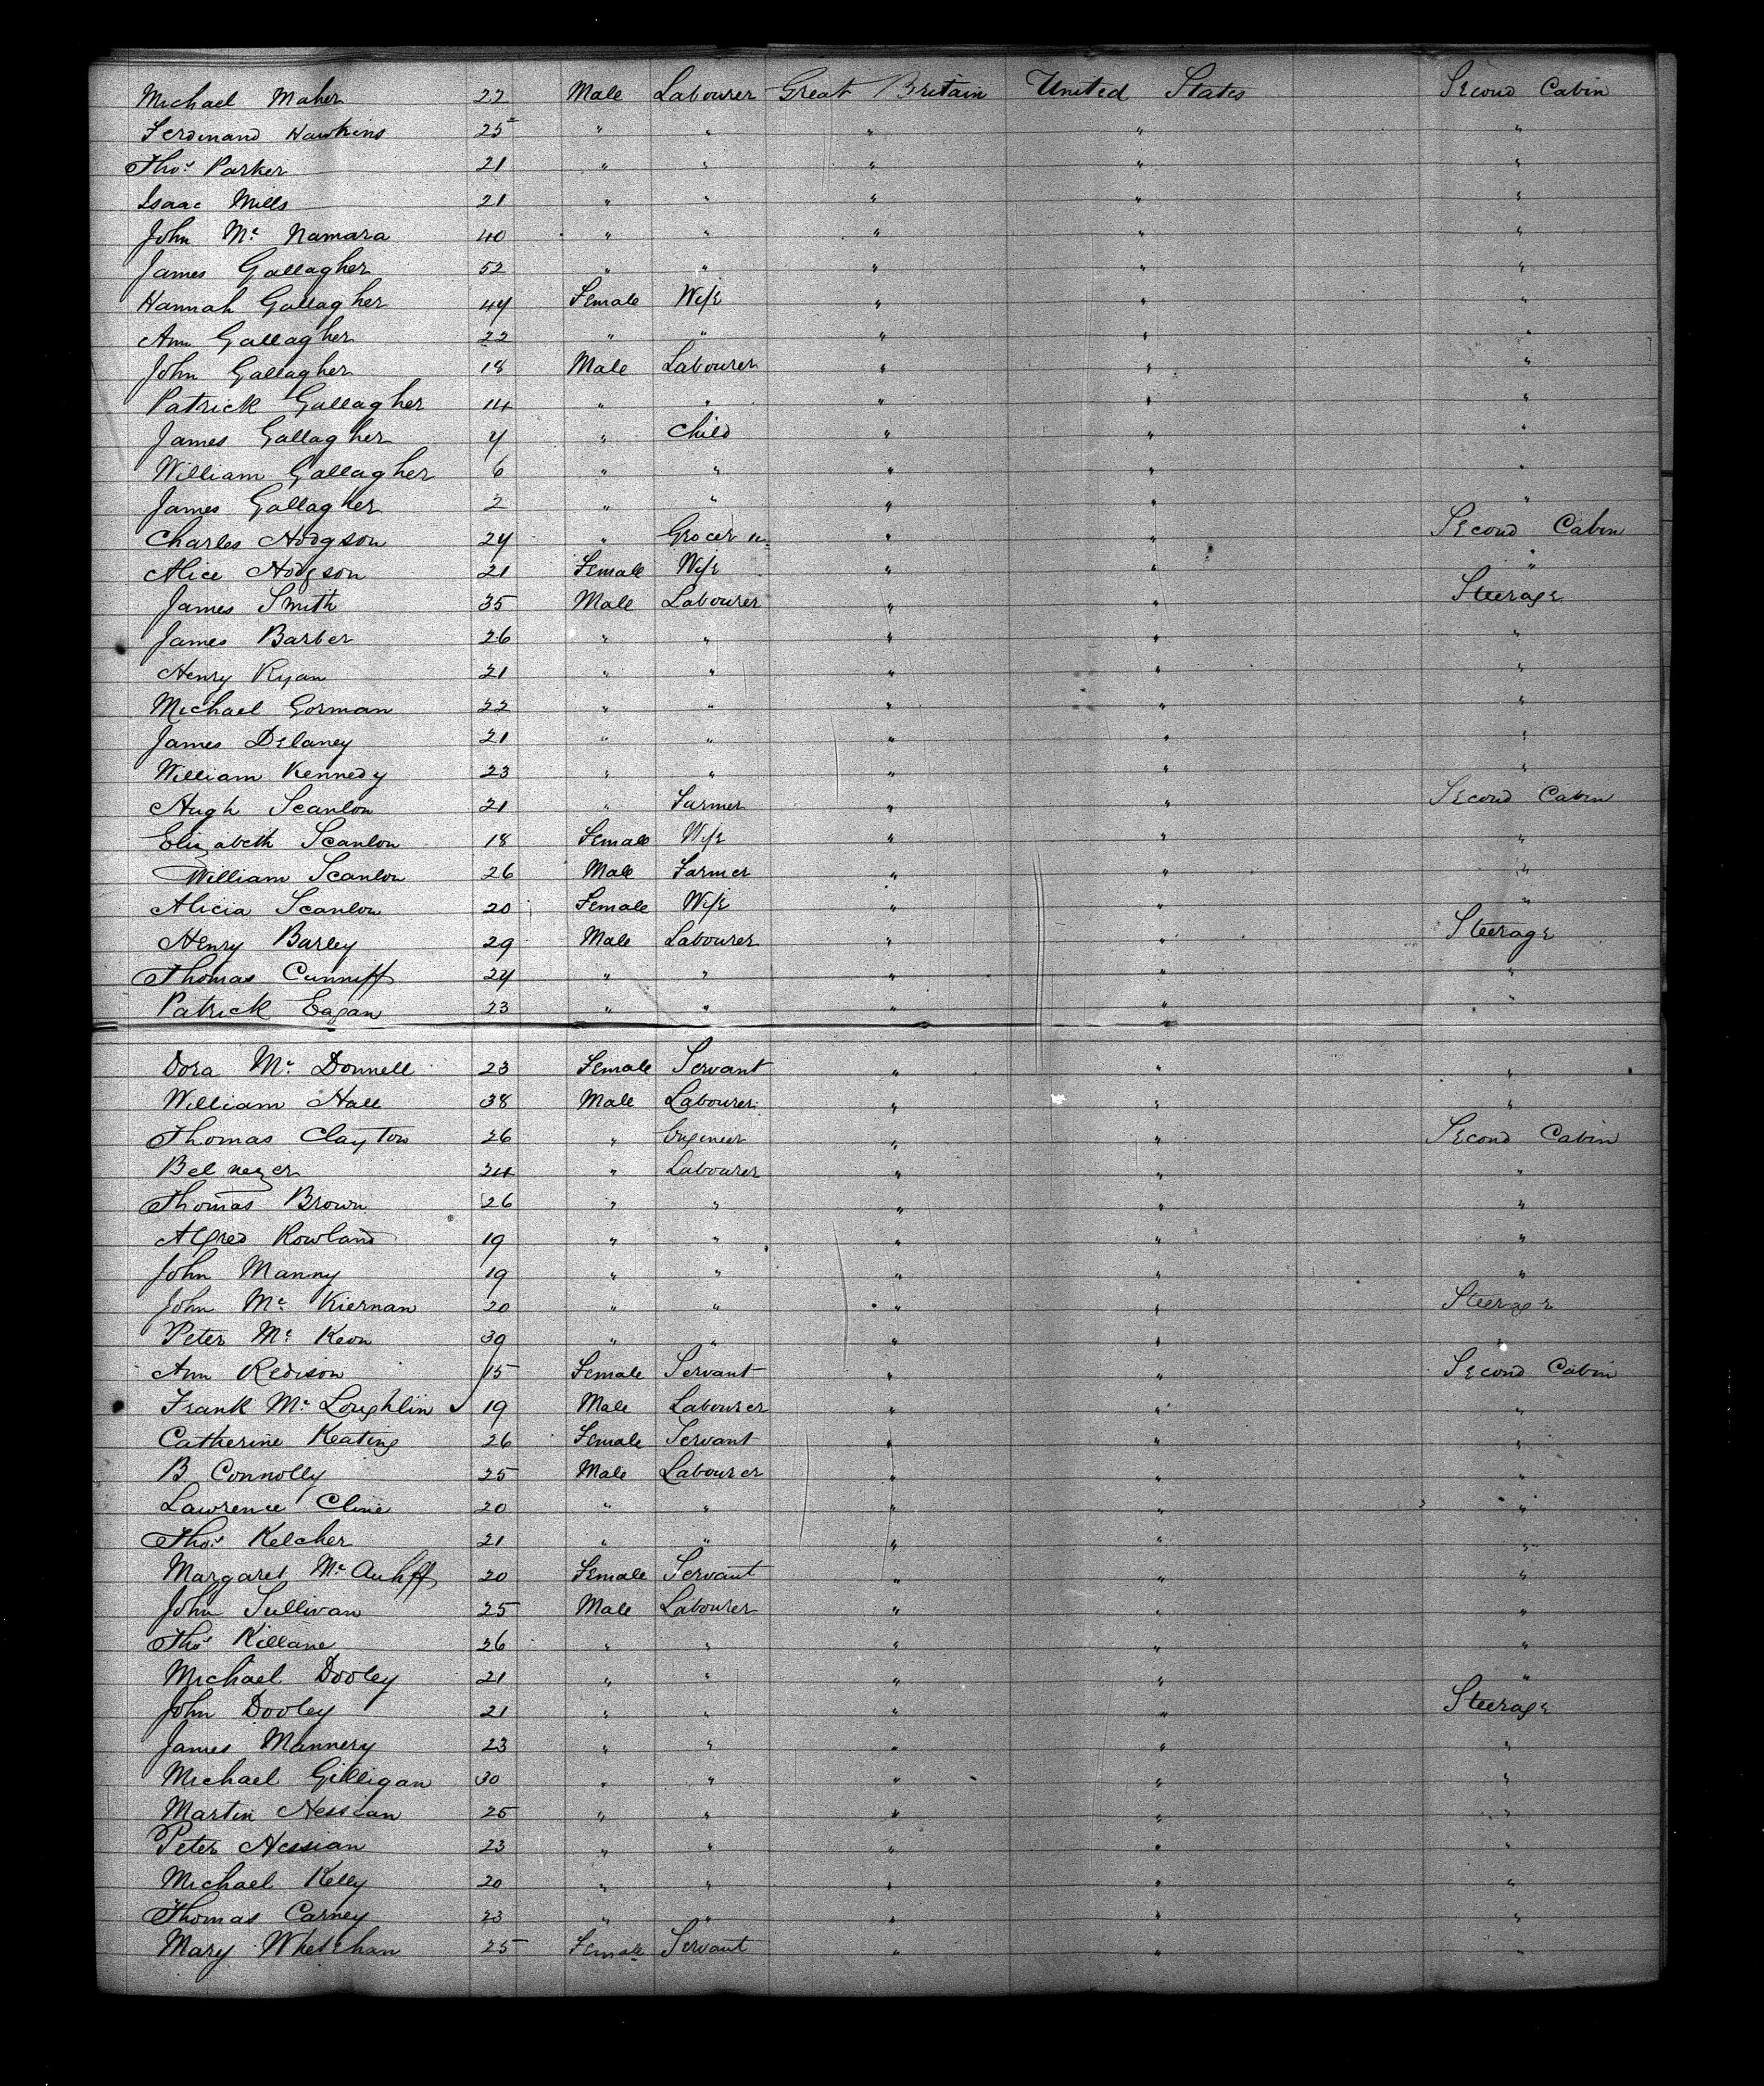 Michael Maher 22 Male Labourer Great Britain United States Second Cabin
Ferdinand Hawkins 25 " " " " "
Thos. Parker 21 " " " " "
Isaac Mills 21 " " " " "
John Mc Namara 40 " " " " "
James Gallagher 52 " " " " "
Hannah Gallagher 44 Female Wife " " "
Ann Gallagher 22 " " " " "
John Gallagher 18 Male Labourer " " "
Patrick Gallagher 14 " " " " "
James Gallagher " Child " " "
William Gallagher 6 " " " " "
James Gallagher 2 " " " " "
Charles Hodgson 24 " Grocer " " Second Cabin
Alice Hodgson 21 Female Wife " " "
James Smith 35 Male Labourer " " Steerage
James Barber 26 " " " " "
Henry Ryan 21 " " " " "
Michael Gorman 22 " " " " "
James Delaney 21 " " " " "
William Kennedy 23 " " " " "
Hugh Scanlon 21 " Farmer " " Second Cabin
Elizabeth Scanlon 18 Female Wife " " "
William Scanlon 26 Male Farmer " " "
Alicia Scanlon 20 Female Wife " " "
Henry Barley 29 Male Labourer " " Steerage
Thomas Cunniff 24 " " " " "
Patrick Eagan 23 " " " " "
Dora Mc Donnell 23 Female Servant " " "
William Hall 38 Male Labourer " " "
Thomas Clayton 26 " Engineer " " Second Cabin
Belnezer 24 " Labourer " " "
Thomas Brown 26 " " " " "
Alfred Rowland 19 " " " " "
John Manny 19 " " " " "
John Mc Kiernan 20 " " " " Steerage
Peter Mc Keon 39 " " " " "
Ann Redison 15 Female Servant " " Second Cabin
Frank Mc Loughlin 19 Male Labourer " " "
Catherine Keating 26 Female Servant " " "
B. Connolly 25 Male Labourer " " "
Lawrence Cline 20 " " " " "
Thos. Kelcher 21 " " " " "
Margaret 20 Female Servant " " "
John Sullivan 25 Male Labourer " " "
Thos Killane 26 " " " " "
Michael Dooley 21 " " " " "
John Dooley 21 " " " " Steerage
James Mannery 23 " " " " "
Michael Gilligan 30 " " " " "
Martin Nessian 25 " " " " "
Peter Nessian 23 " " " " "
Michael Kelly 20 " " " " "
Thomas Carney 23 " " " " "
Mary Whelehan 25 Female Servant " " "